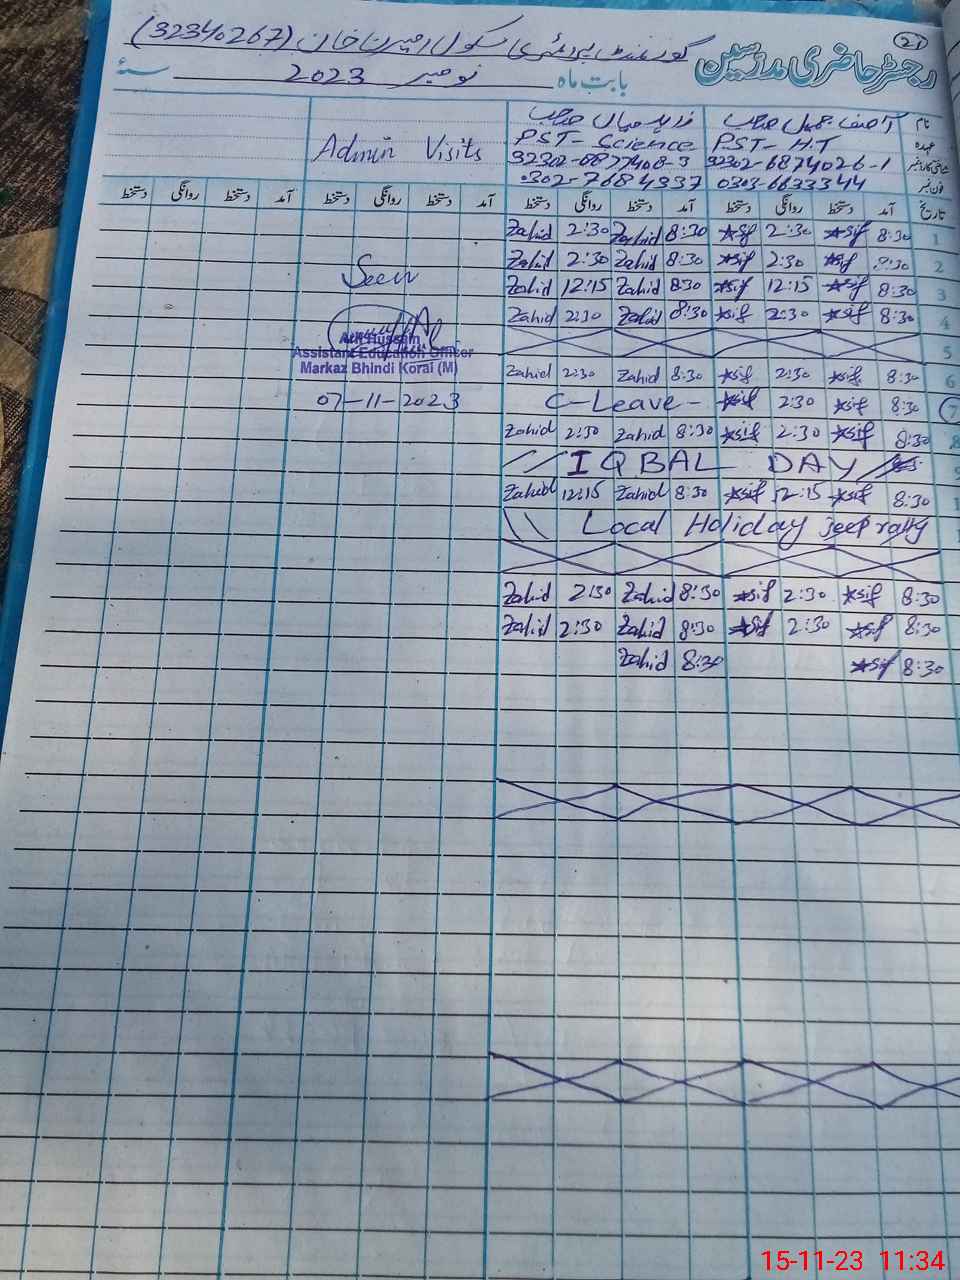 21
گورنمنٹ پرائمری سکول امیرن خان (32340267)
رجسٹر حاضری مدرسین
بابت ماہ نومبر 2023 سنہ
نام
زاہد میاں صاحب
عہدہ PST- H.T PST- Science Admin Visits
شناختی کارڈ نمبر 32302-6874026-1 32302-6877408-3
فون نمبر 0303-6633344 0302-7684337
تاریخ آمد دستخط روانگی دستخط آمد دستخط روانگی دستخط آمد دستخط روانگی دستخط آمد دستخط روانگی دستخط
Zahid 2:30 Zahid 8:30 Asif 2:30 Asif 8:30 1
Zahid 2:30 Zahid 8:30 Asif 2:30 Asif 8:30 2
Zahid 12:15 Zahid 8:30 Asif 12:15 Asif 8:30 3
Zahid 2:30 Zahid 8:30 Asif 2:30 Asif 8:30 4
5
Zahid 2:30 Zahid 8:30 Asif 2:30 Asif 8:30 6
C-Leave- Asif 2:30 Asif 8:30 7
Zahid 2:30 Zahid 8:30 Asif 2:30 Asif 8:30 8
IQBAL DAY 9
Zahid 12:15 Zahid 8:30 Asif 12:15 Asif 8:30
Local Holiday Jeep rally
Zahid 2:30 Zahid 8:30 Asif 2:30 Asif 8:30
Zahid 2:30 Zahid 8:30 Asif 2:30 Asif 8:30
Zahid 8:30 Asif 8:30
Seen
Arif Hussain
Assistant Education Officer
Markaz Bhindi Korai (M)
07-11-2023
15-11-23 11:34